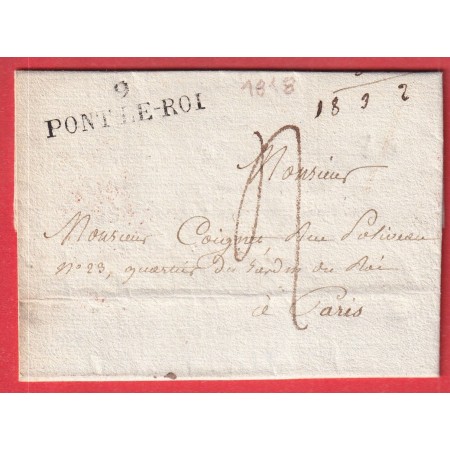 9
PONT-LE-ROI
1818
18 9 2
4
Monsieur
Monsieur Coignet Rue Poliveau
N° 23, quartier du Jardin du Roi
à Paris